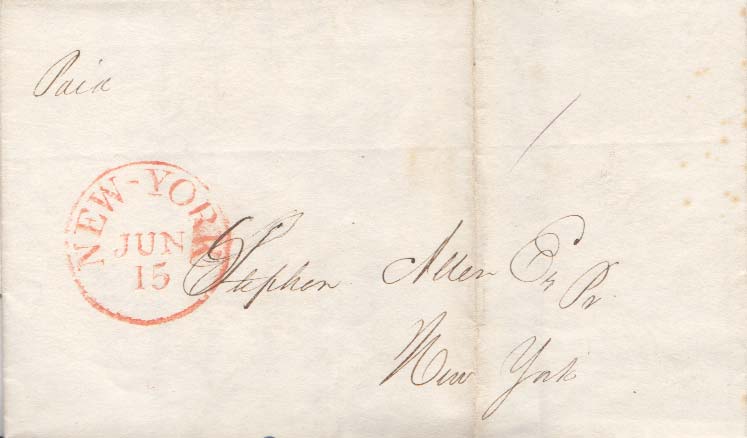 Paid
NEW-YORK
JUN
15
Stephen Allen Esqr
New York